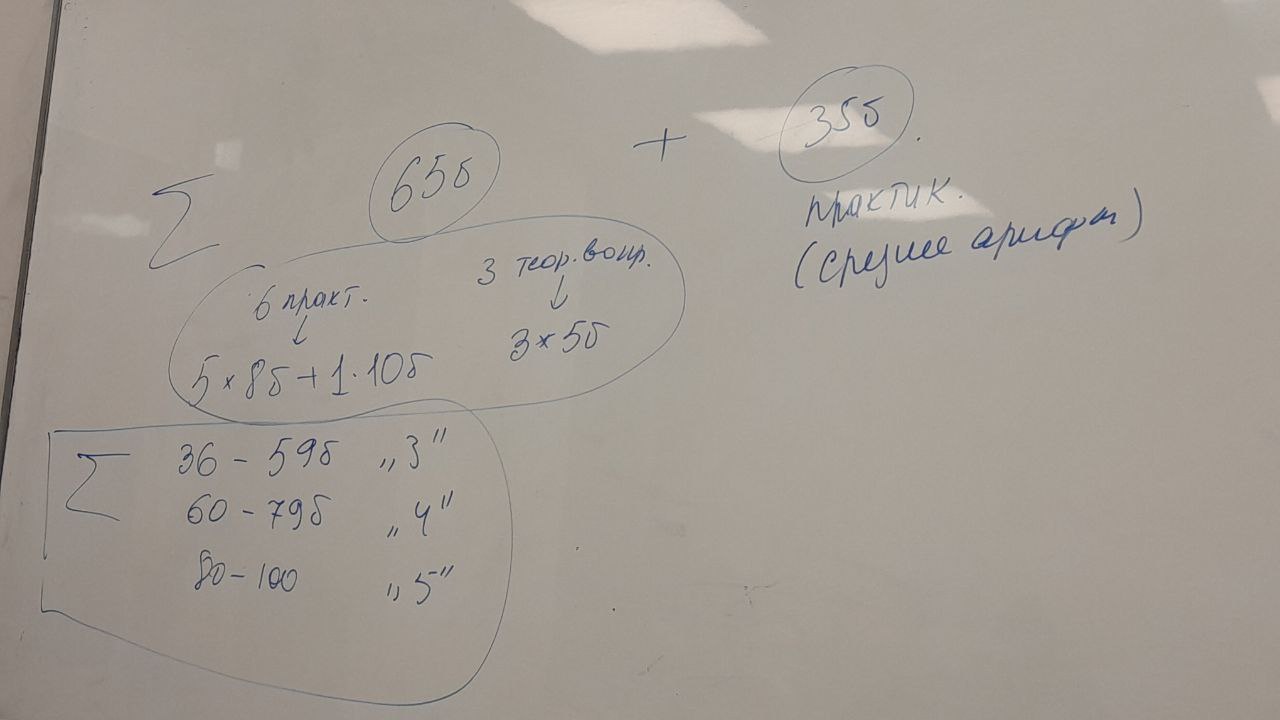 Σ 65б + 35б.
практик.
(среднее арифм)
6 практ. 3 теор. вопр.
↓ ↓
5×8б+1·10б 3×5б
Σ 36 - 59б „3"
60 - 79б „4"
80 - 100 „5"